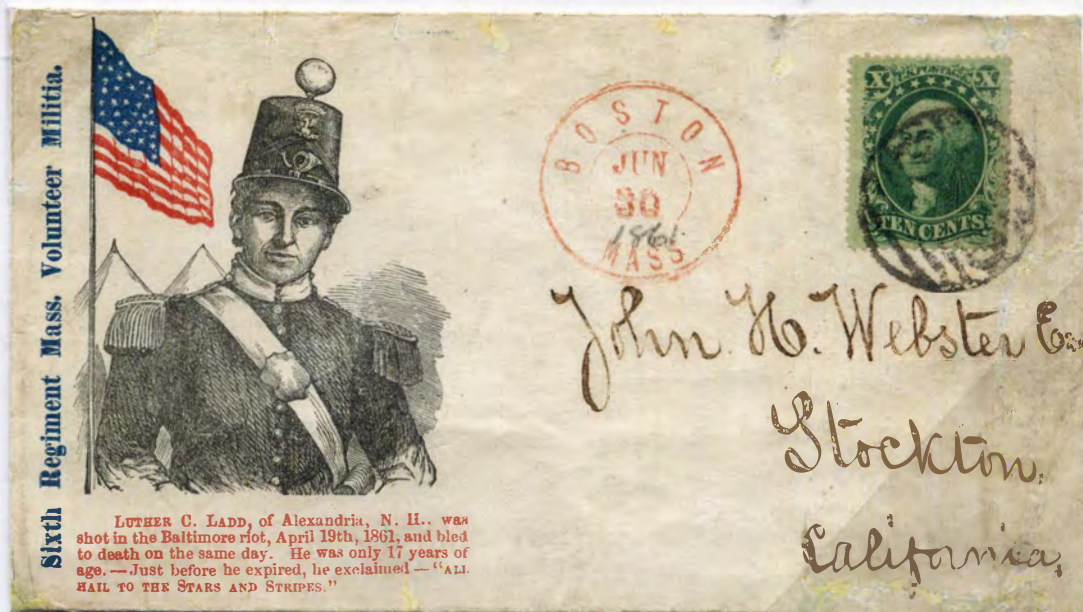 Sixth Regiment Mass. Volunteer Militia.
LUTHER C. LADD, of Alexandria, N. H., was
shot in the Baltimore riot, April 19th, 1861, and bled
to death on the same day. He was only 17 years of
age. — Just before he expired, he exclaimed — "ALL
HAIL TO THE STARS AND STRIPES."
BOSTON
JUN
30
1861
MASS
X U.S. POSTAGE X
TEN CENTS.
John. H. Webster Esq
Stockton.
California,